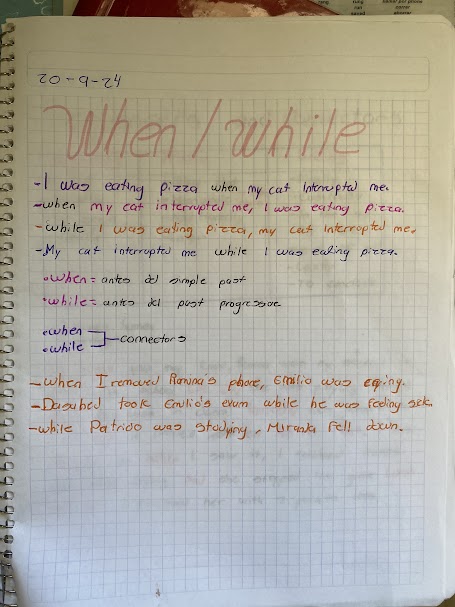 20-9-24
When/while
-I was eating pizza when my cat interrupted me.
-when my cat interrupted me, I was eating pizza.
-while I was eating pizza, my cat interrupted me.
-My cat interrupted me while I was eating pizza.
•when= antes del simple past
•while= antes del past progressive
•when
•while
connectors
-when I removed phone, Emilio was
- took Emilio's exam while he was feeling sick.
-while Patricio was studying, Miranda fell down.